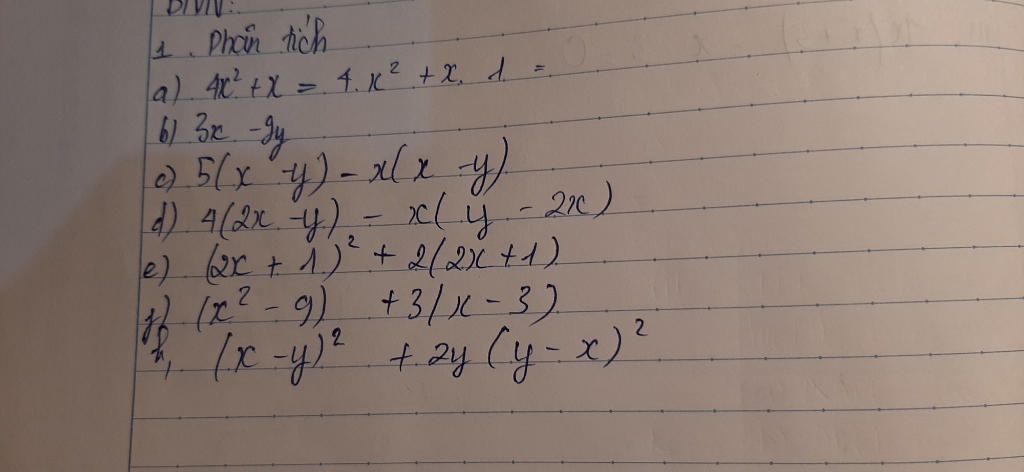 BTVN:
1. Phân tích
a) 4x² + x = 4. x² + x. 1 =
b) 3x - 9y
c) 5(x - y) - x(x - y)
d) 4(2x - y) - x(y - 2x)
e) (2x + 1)² + 2(2x + 1)
f) (x² - 9) + 3(x - 3)
h, (x - y)² + 2y (y - x)²